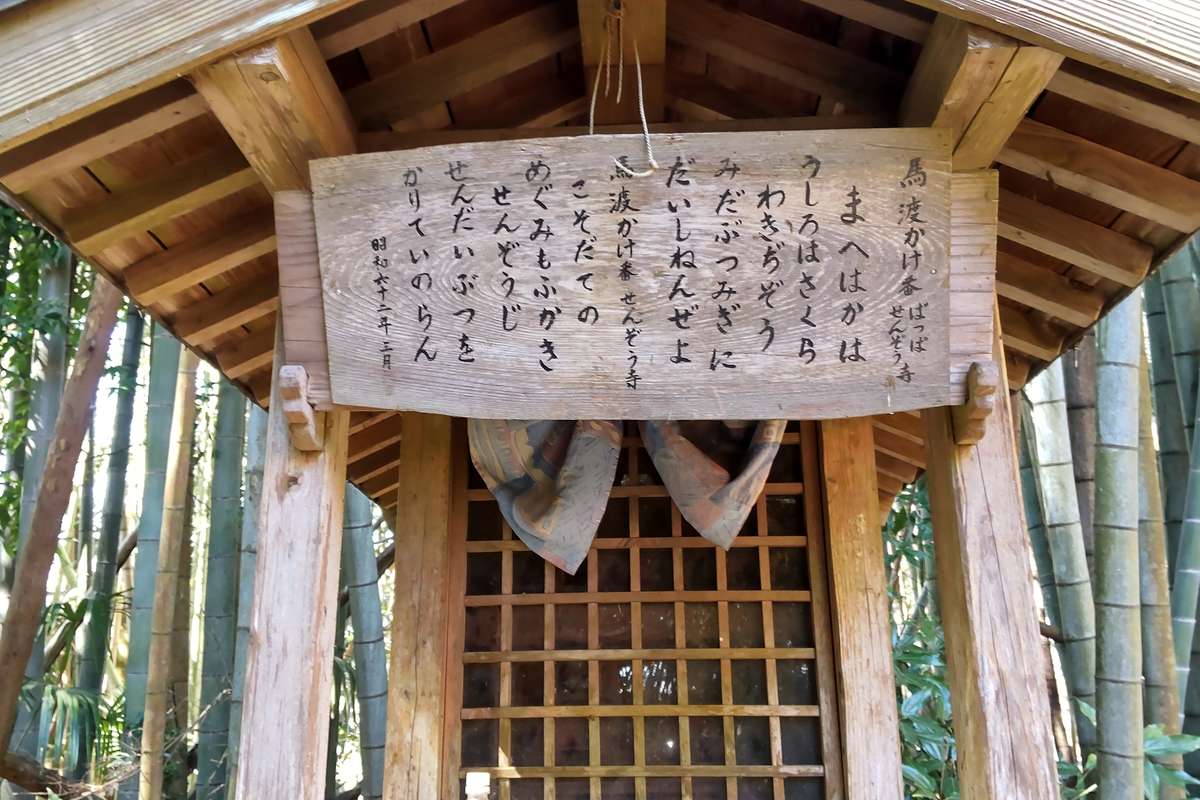 馬渡かけ番 ばっぱ
せんぞう寺
まへはかは
うしろはさくら
わきぢぞう
みだぶつみぎに
だいしねんぜよ
馬渡かけ番 せんぞう寺
こそだての
めぐみもふかき
せんぞうじ
せんだいぶつを
かりていのらん
昭和六十二年三月